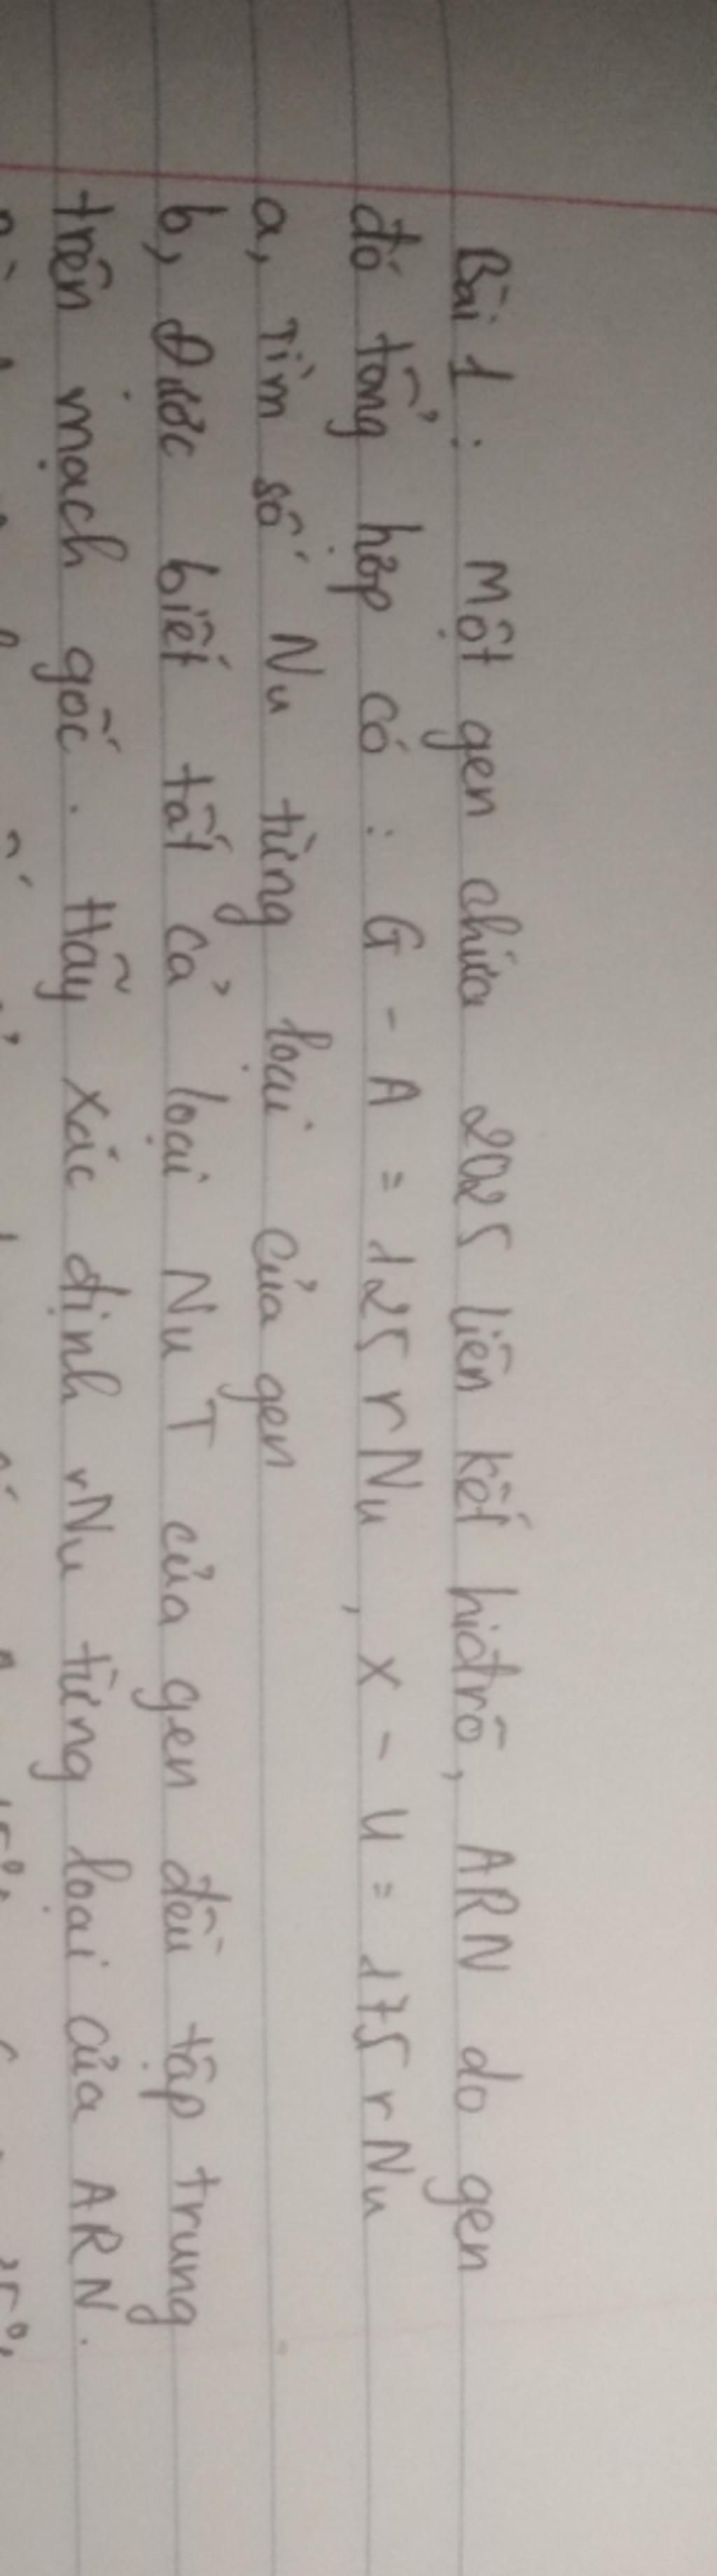 Bài 1: Một gen chứa 2025 liên kết hiđrô, ARN do gen
đó tổng hợp có : G - A = 125 rNu , X - U = 175 rNu
a, Tìm số Nu từng loại của gen
b, Được biết tất cả loại Nu T của gen đều tập trung
trên mạch gốc. Hãy xác định rNu từng loại của ARN.